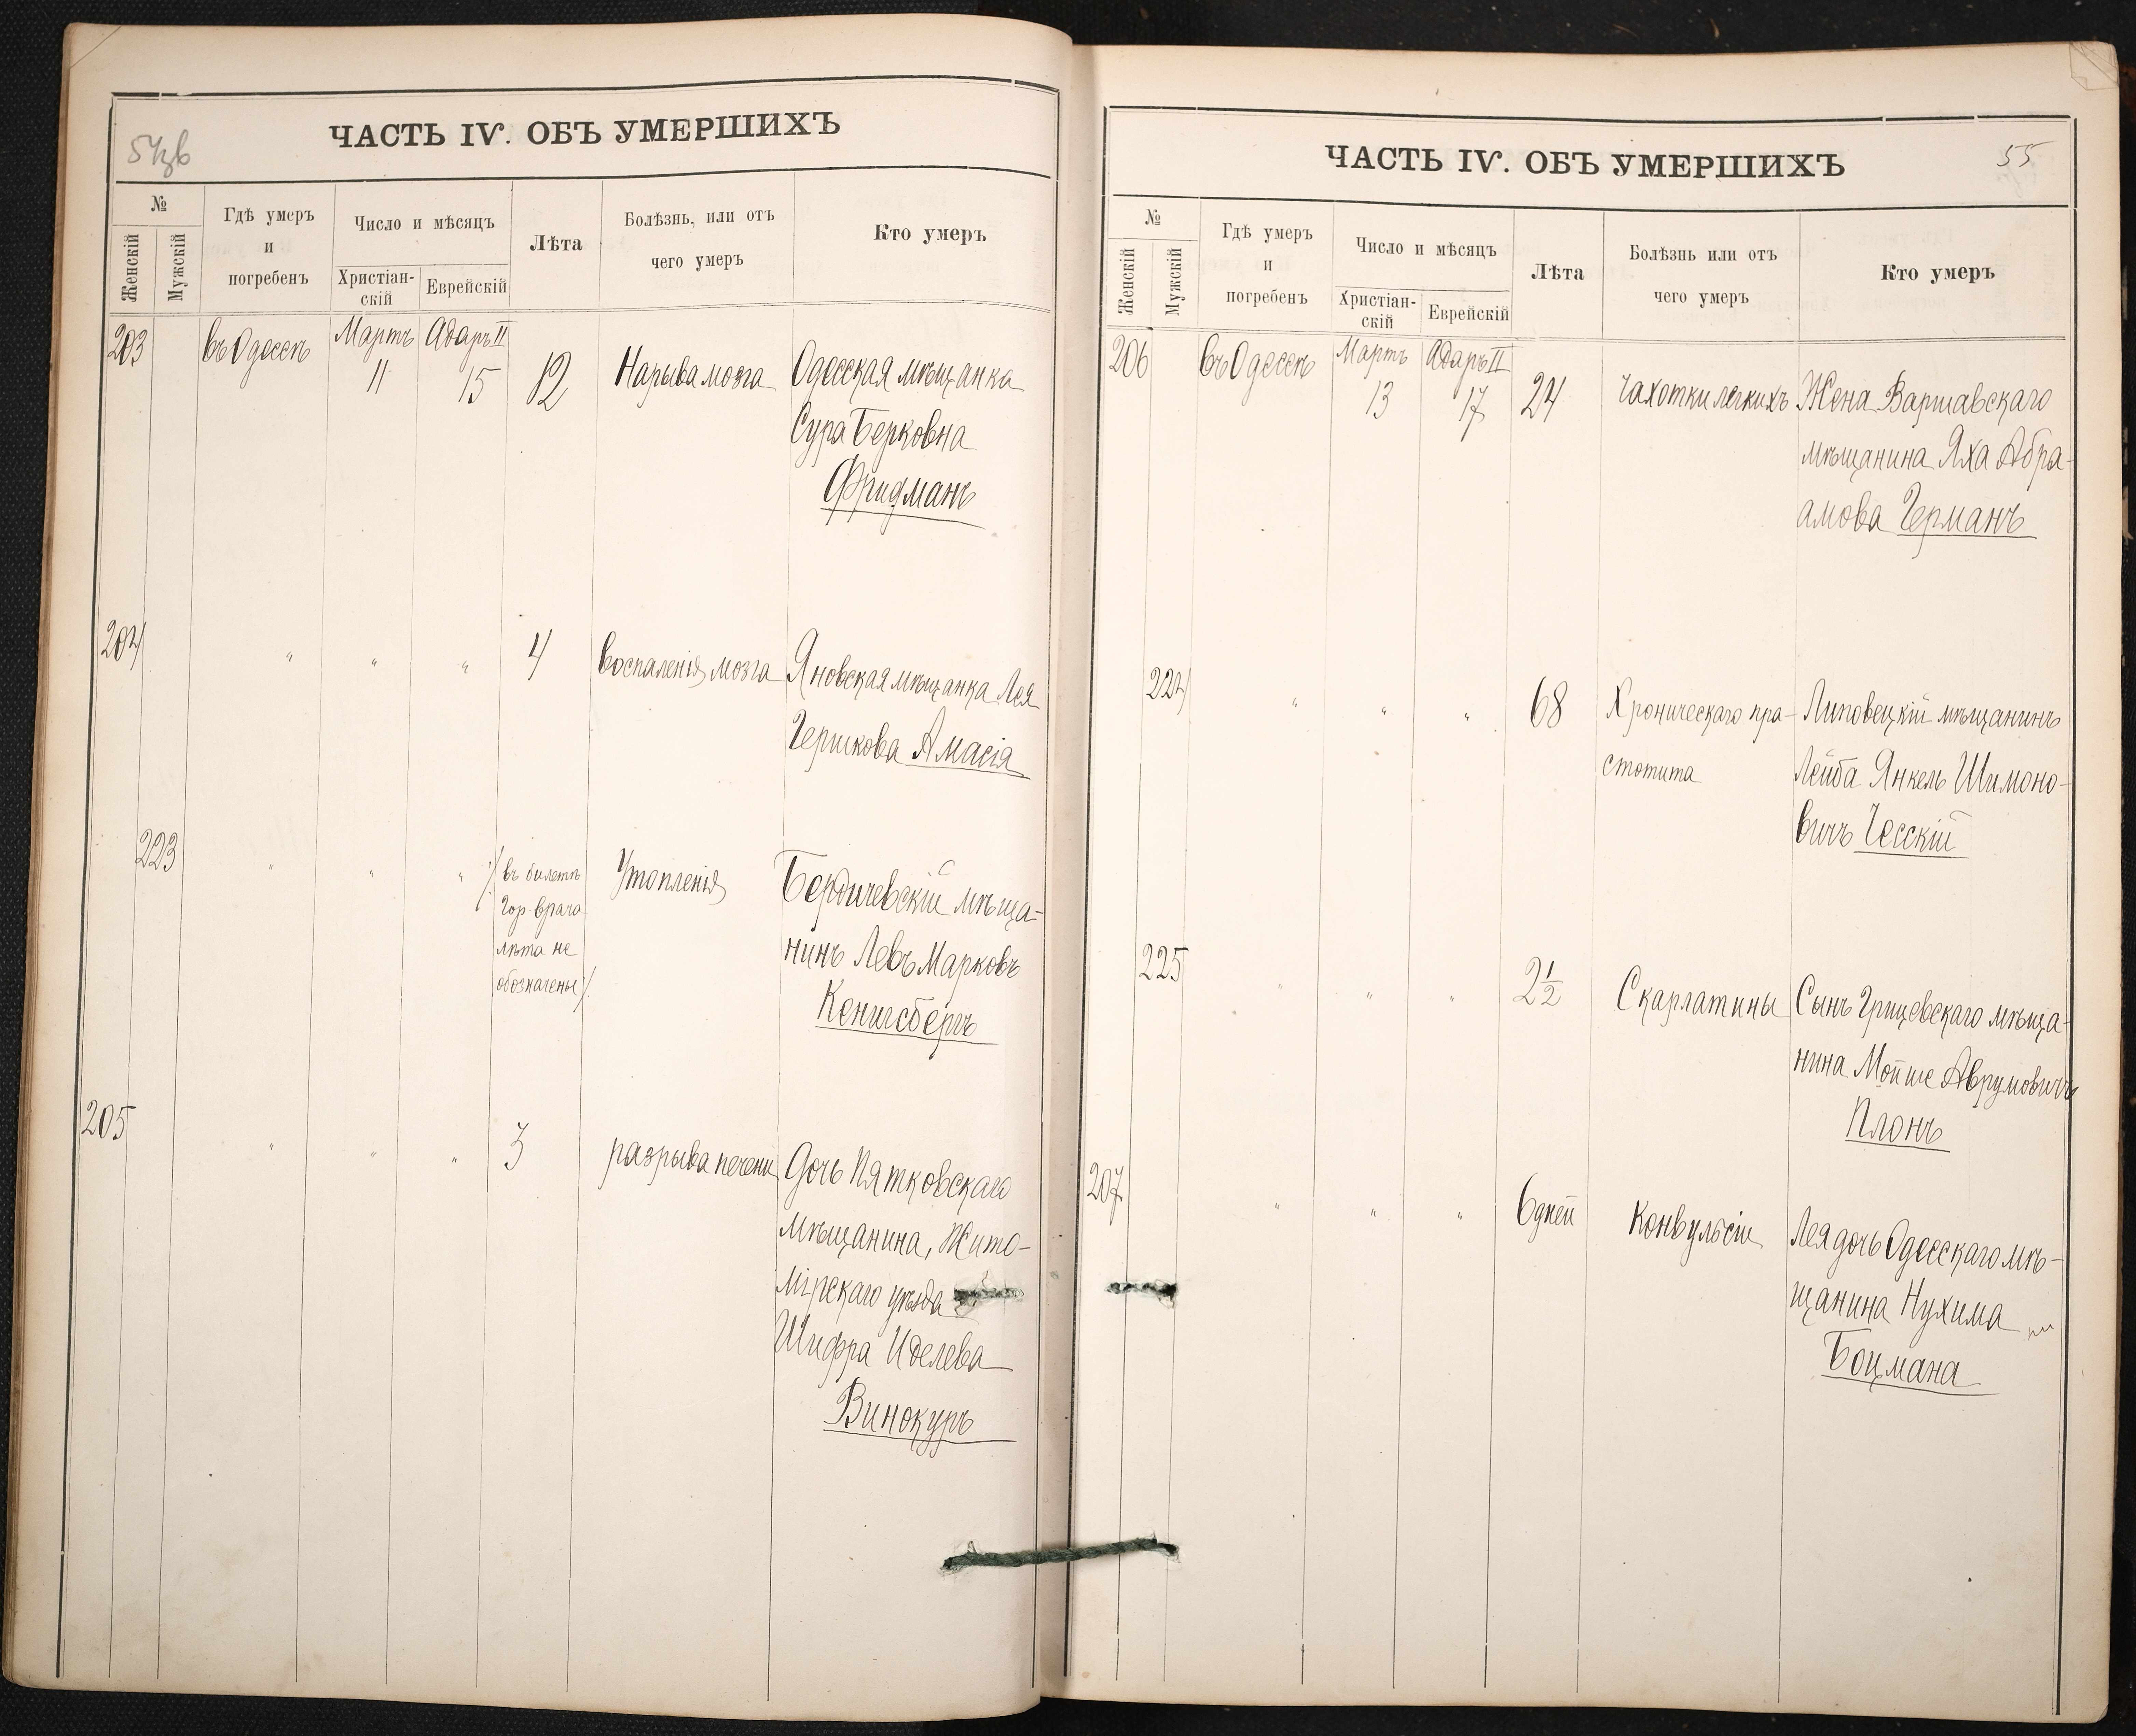 54зв
ЧАСТЬ IV. ОБЪ УМЕРШИХЪ
№
Женскій
Мужскій
Гдѣ умеръ
и
погребенъ
Число и мѣсяцъ
Христіан-
скій
Еврейскій
Лѣта
Болѣзнь, или отъ
чего умеръ
Кто умеръ
203 въ Одессѣ Мартъ Адаръ II
11 15 12 Нарыва мозга Одесская мѣщанка
Сура Берковна
Фридманъ
204 " " " 4 воспаленія мозга Яновская мѣщанка Лея
Гершкова Амасія
223 " " " /въ билетѣ Утопленія Бердичевскій мѣща-
Гор. врача
лѣта не нинъ Левъ Марковъ
обозначены/. Кенигсбергъ
205 " " " 3 разрыва печени Дочь Пятковскаго
мѣщанина, Жито-
мірскаго уѣзда
Шифра Иделева
Винокуръ
55
ЧАСТЬ IV. ОБЪ УМЕРШИХЪ
№
Женскій
Мужскій
Гдѣ умеръ
и
погребенъ
Число и мѣсяцъ
Христіан-
скій
Еврейскій
Лѣта
Болѣзнь или отъ
чего умеръ
Кто умеръ
206 въ Одессѣ Мартъ Адаръ II
13 17 24 Чахотки легкихъ Жена Варшавскаго
мѣщанина Яха Абра-
амова Германъ
224 " " " 68 Хроническаго пра- Липовецкій мѣщанинъ
стотита Лейба Янкель Шимоно-
вичъ Чесскій
225 " " " 2 1/2 Скарлатины Сынъ Грицевскаго мѣща-
нина Мойше Аврумовичъ
Плонъ
207 " " " 6 дней Конвульсіи Лея дочь Одесскаго мѣ-
щанина Нухима
Боцмана